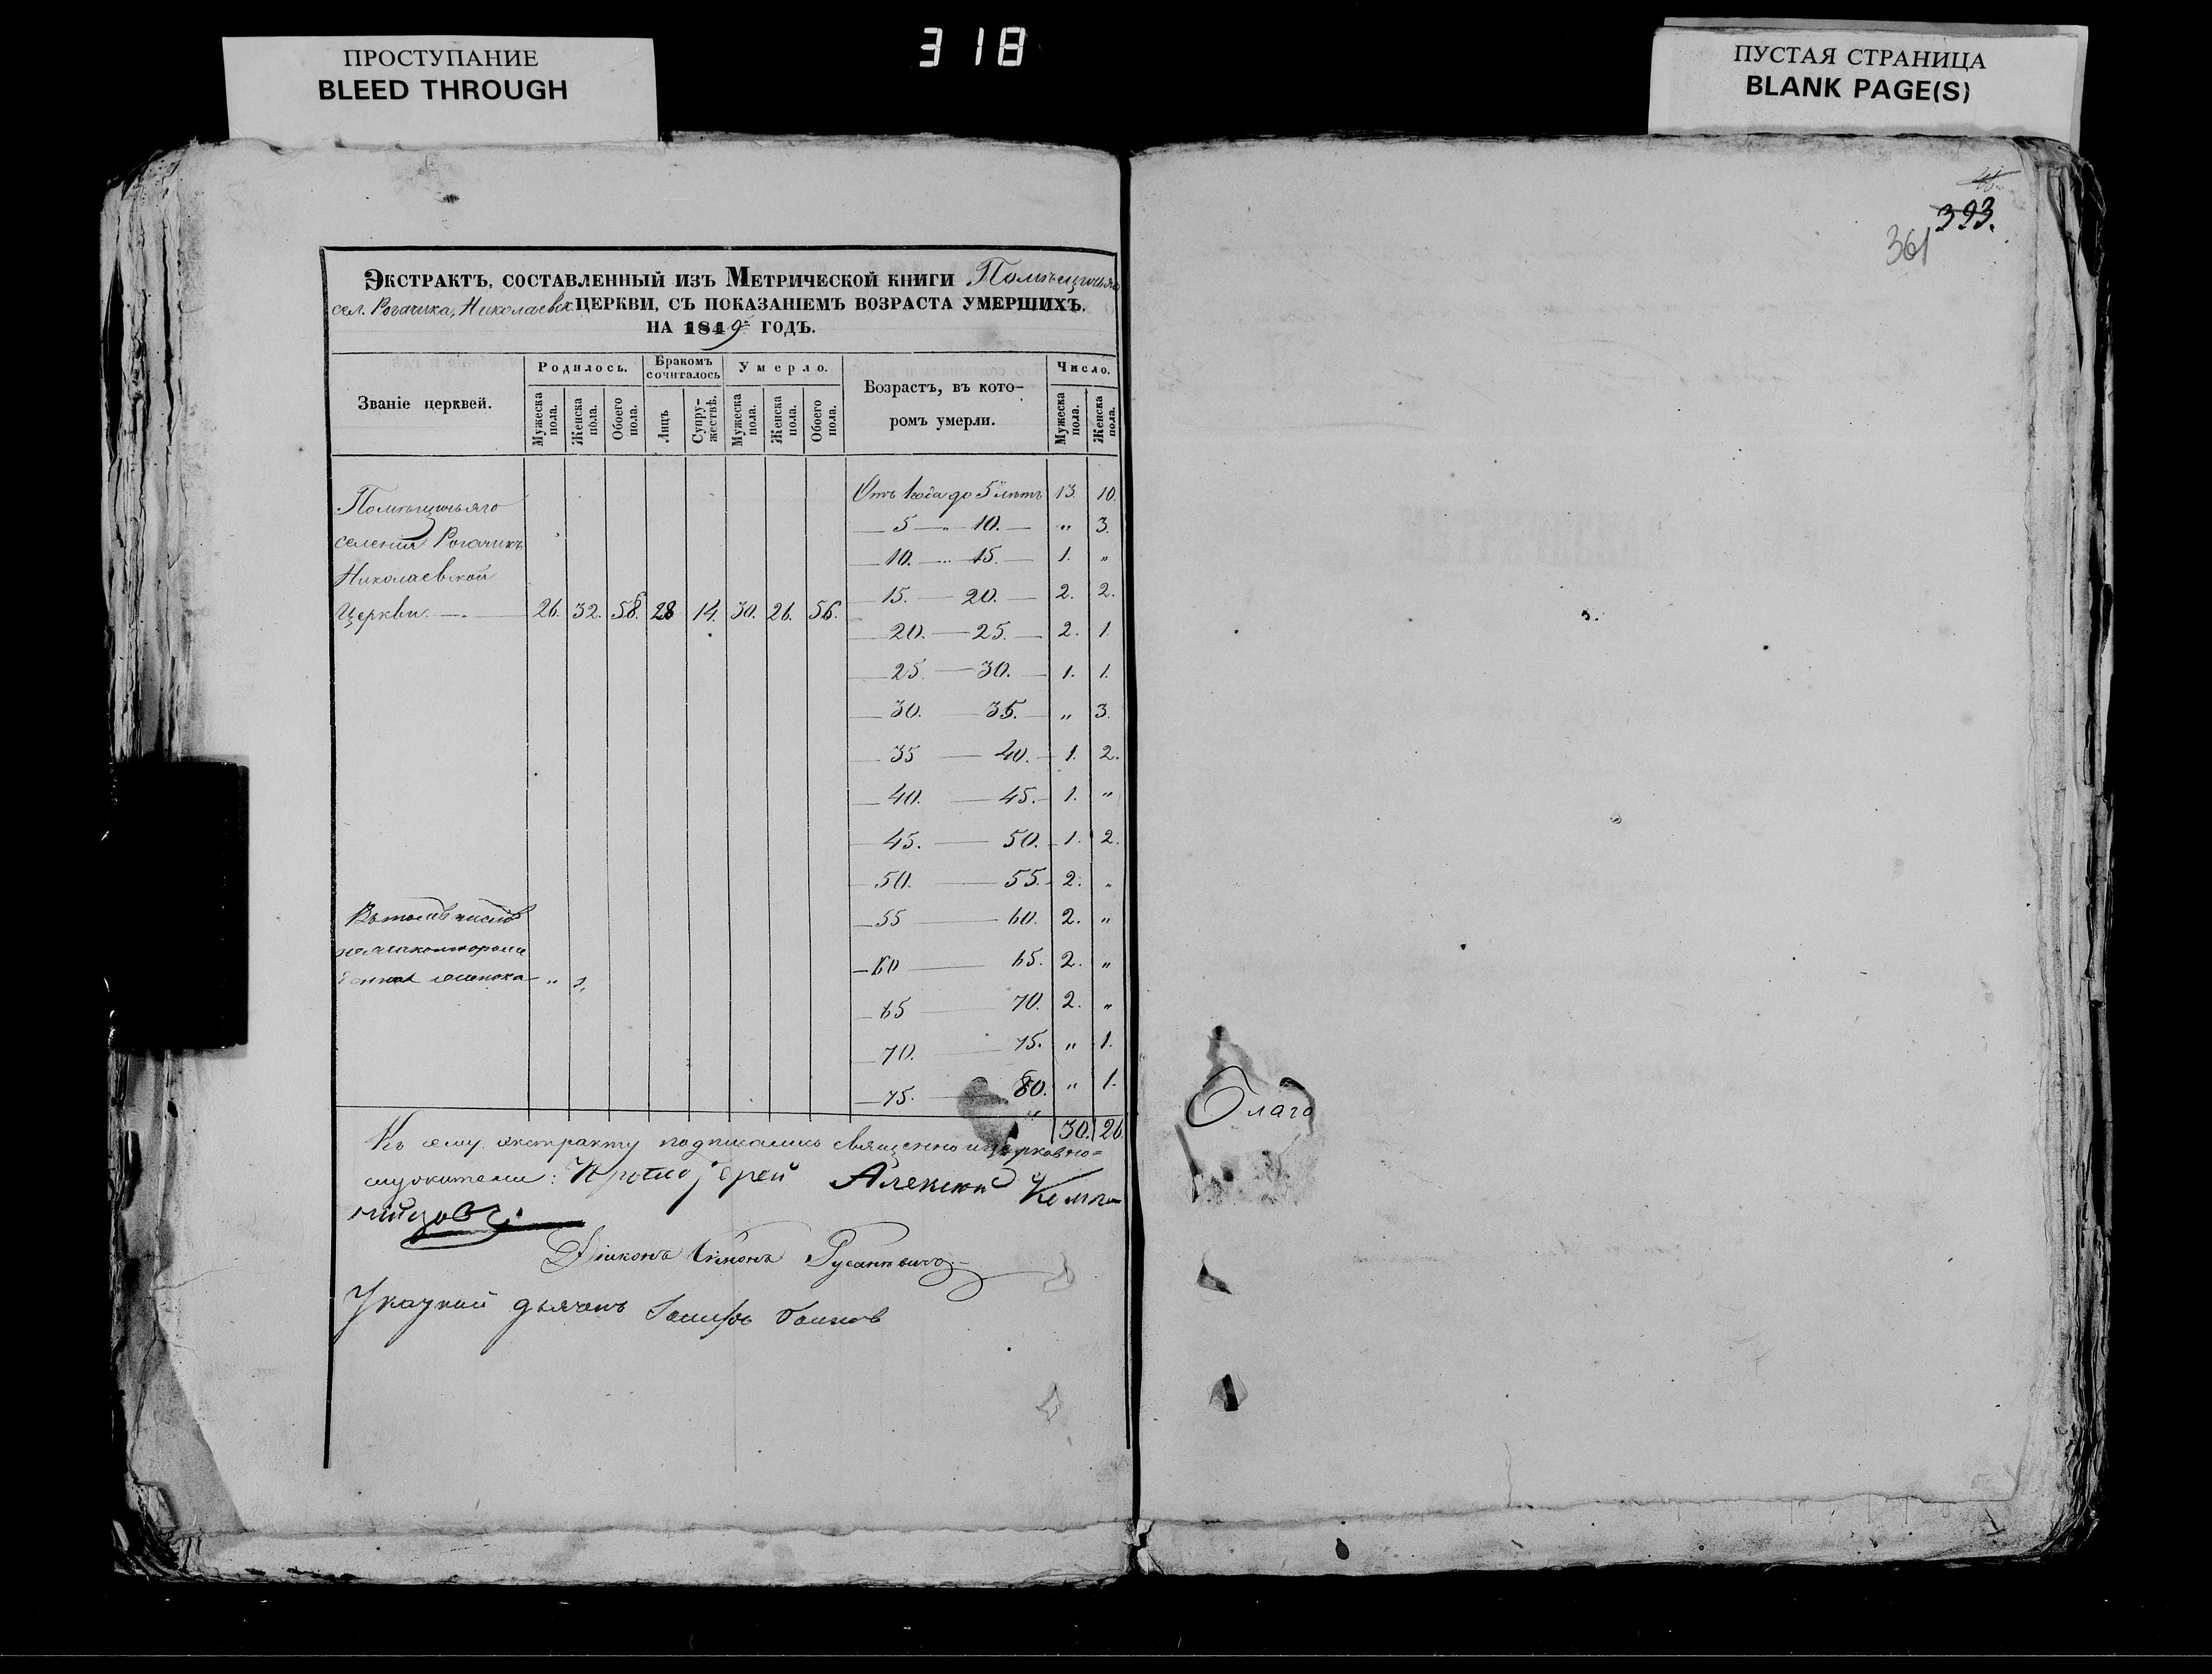 ПРОСТУПАНИЕ
BLEED THROUGH
318
ПУСТАЯ СТРАНИЦА
BLANK PAGE(S)
393.
361
Экстрактъ, составленный изъ Метрической книги Помѣщичьяго
сел. Рогачика, Николаевск. церкви, съ показаніемъ возраста умершихъ.
на 1849 годъ.
Званіе церквей.
Родилось.
Бракомъ сочиталось
Умерло.
Возрастъ, въ которомъ умерли.
Число.
Мужеска пола.
Женска пола.
Обоего пола.
Лицъ
Супружествъ.
Мужеска пола.
Женска пола.
Обоего пола.
Мужеска пола.
Женска пола.
Помѣщичьяго
селенія Рогачикъ
Николаевской
Церкви. — 26. 32. 58. 28 14. 30. 26. 56.
Отъ 1 года до 5 лѣтъ 13. 10.
— 5 — 10. — „ 3.
— 10. — 15. — 1. „
15. — 20. — 2. 2.
— 20. — 25. — 2. 1.
— 25. — 30. — 1. 1.
— 30. — 35. — „ 3.
— 35 — 40. — 1. 2.
— 40. — 45. — 1. „
— 45. — 50. — 1. 2.
— 50. — 55. — 2. „
— 55 — 60. 2. „
— 60 — 65. 2. „
— 65 — 70. 2. „
— 70. — 75. „ 1.
— 75. — 80. „ 1.
30. 26.
Въ томъ числѣ
„ 1.
Къ сему экстракту подписались священно и церковно=
служители: Протоіерей Алексій
Діаконъ Симонъ
Указный дьячекъ Іосифъ
Благо